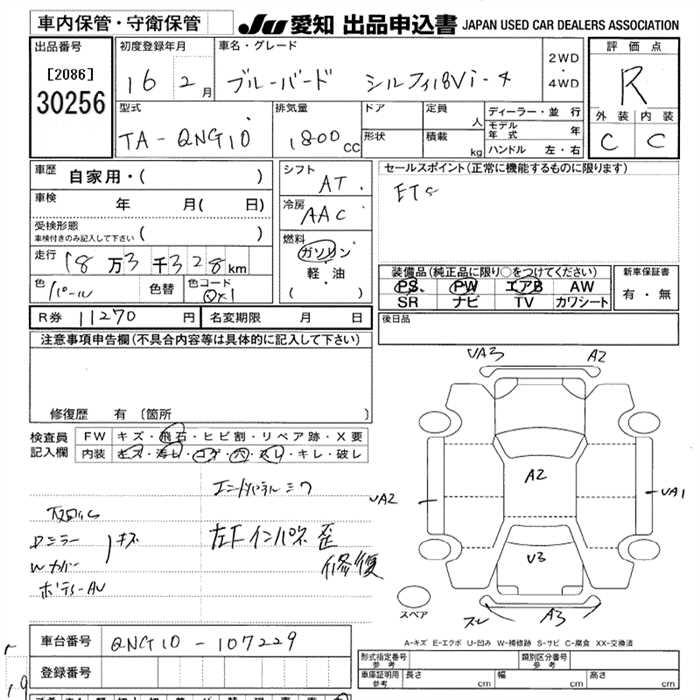 車内保管・守衛保管
JU 愛知 出品申込書 JAPAN USED CAR DEALERS ASSOCIATION
出品番号
[2086]
30256
初度登録年月
16 2月
車名・グレード
ブルーバード シルフィ18Vi-4
2WD
・
4WD
評価点
R
外装 内装
C C
型式
TA-QNG10
排気量
1800cc
ドア
形状
定員 人
積載 kg
ディーラー・並行
モデル年式 年
ハンドル 左・右
車歴 自家用・( )
車検 年 月( 日)
受検形態
車検付きのみ記入して下さい ( )
走行 18万3千328km
色 パール 色替 色コード QX1
シフト AT
冷房 AAC
燃料
ガソリン
軽・油
( )
セールスポイント(正常に機能するものに限ります)
装備品(純正品に限り○をつけてください)
PS PW エアB AW
SR ナビ TV カワシート
新車保証書
有・無
後日品
R券 11270円 名変期限 月 日
注意事項申告欄(不具合内容等は具体的に記入して下さい)
修復歴 有 [箇所
検査員記入欄
FW キズ・飛石・ヒビ割・リペア跡・X要
内装 キズ・汚レ・コゲ・穴・スレ・キレ・破レ
キズ
左F インパネ 歪
修復
VA3 A2
VA2 A2 VA1
V3
スレ A3
スペア
A-キズ E-エクボ U-凹み W-補修跡 S-サビ C-腐食 XX-交換済
車台番号 QNG10-107229
登録番号
形式指定番号 参考
類別区分番号 参考
車庫証明用 参考 長さ cm 幅 cm 高さ cm